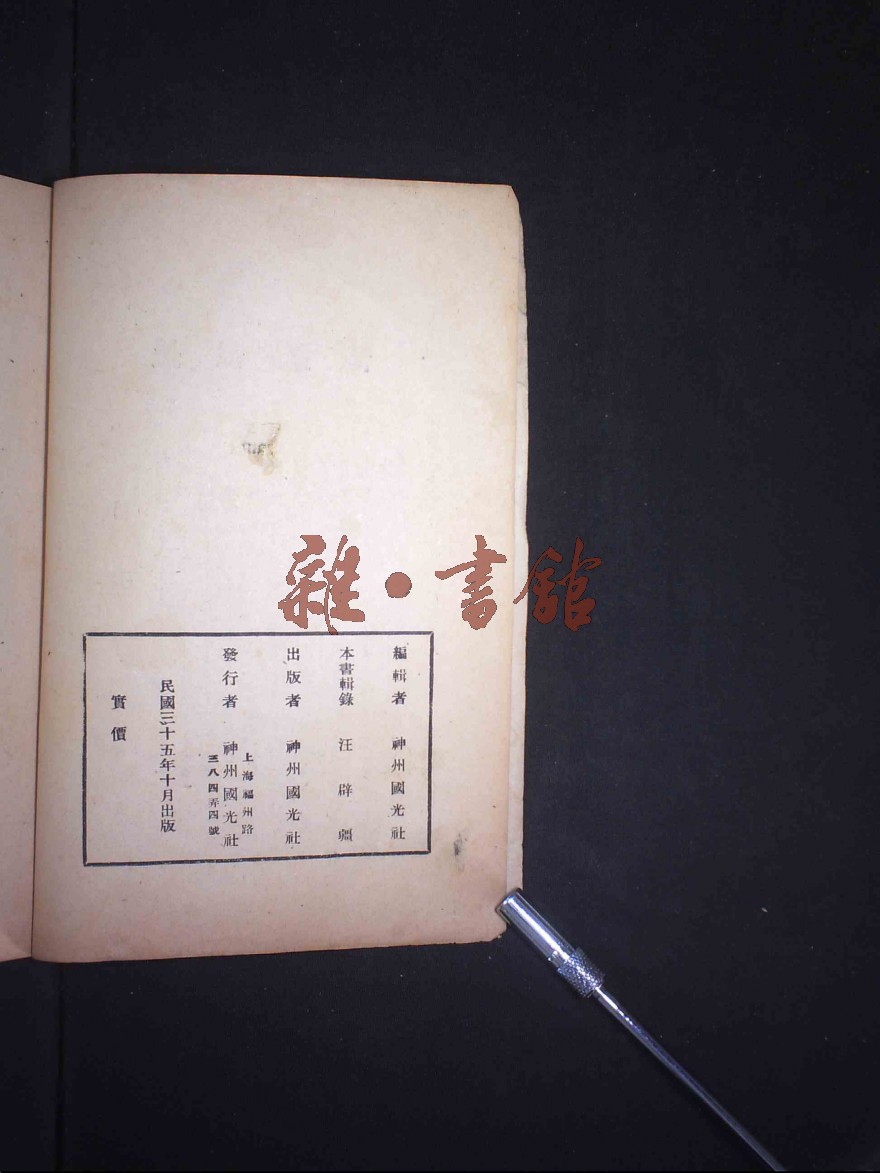 編輯者 神州國光社
本書輯錄 汪辟疆
出版者 神州國光社
發行者 神州國光社
上海福州路
三八四弄四號
民國三十五年十月出版
實價
雜·書館